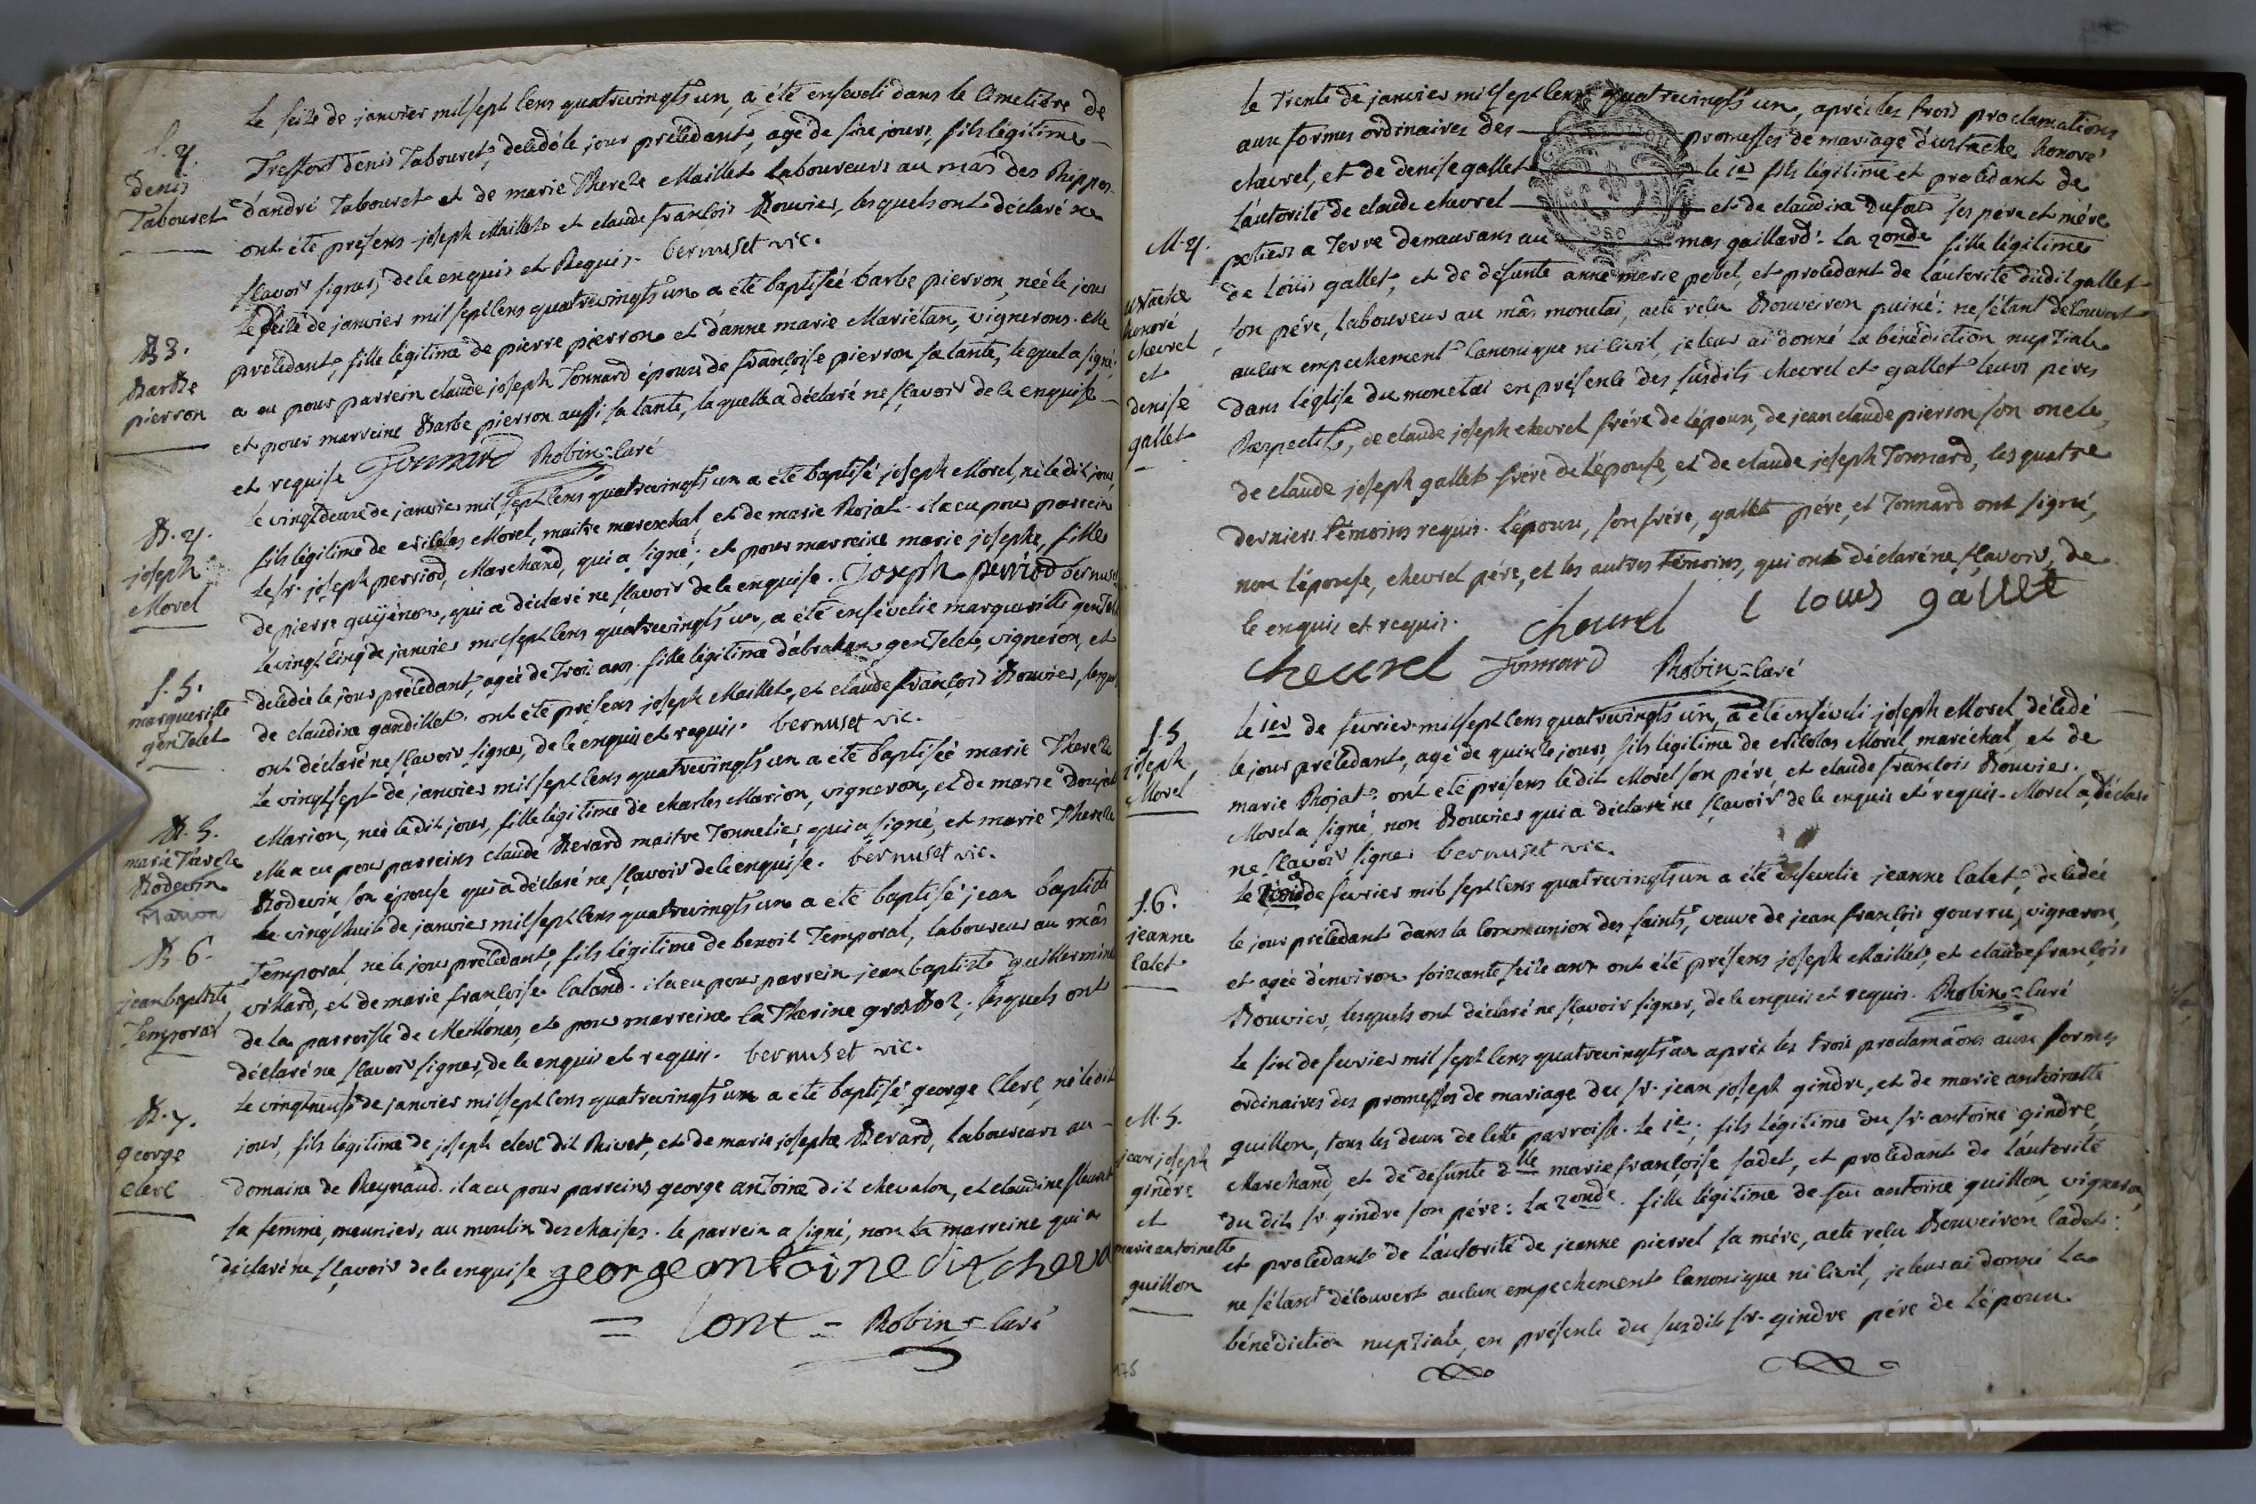 S. 4.
denis
Tabouret
le seize de janvier mil sept cens quatrevingts un, a été enseveli dans le cimetière de
Treffort denis Tabouret, decedé le jour précédant, agé de six jours, fils légitime
d'andré Tabouret et de marie Therese Maillet laboureurs au mas des Phippes
ont été présens joseph Maillet et claude françois Bouvier, lesquels ont déclaré ne
sçavoir signer, de ce enquis et Requis. bernuset vic.
B 3.
Barbe
pierron
le seize de janvier mil sept cens quatrevingts un a été baptisée barbe pierron, née le jour
précédant, fille légitime de pierre pierron et d'anne marie Mariétan, vignerons. elle
a eu pour parrein claude joseph Tonnard époux de françoise pierron sa tante, lequel a signé
et pour marreine Barbe pierron aussi sa tante, laquelle a déclaré ne sçavoir de ce enquise
et requise Tonnard Robin = curé
B. 4.
joseph
Morel
le vingt deux de janvier mil sept cens quatrevingts un a été baptisé joseph Morel, né le dit jour,
fils légitime de nicolas Morel, maitre marechal et de marie Rojat. il a eu pour parrein
le sr. joseph perriod, Marchand, qui a signé; et pour marreine marie josephe, fille
de pierre guyénon, qui a déclaré ne sçavoir de ce enquise. joseph perriod bernuset
S. 5.
marguerite
genTelet
le vingt cinq de janvier mil sept cens quatrevingts un, a été ensévelie marguerite genTelet
decedée le jour précédant, agée de Trois ans, fille légitime d'abraham genTelet, vigneron, et
de claudine gandillet. ont été présens joseph Maillet, et claude françois Bouvier, lesquels
ont déclaré ne sçavoir signer, de ce enquis et requis. bernuset vic.
B. 5.
marie Therese
Bodevin
Marion
le vingt sept de janvier mil sept cens quatrevingts un a été baptisée marie Therese
Marion, née le dit jour, fille légitime de charles Marion, vigneron, et de marie Donjat
elle a eu pour parreins claude Berard maitre Tonnelier qui a signé, et marie Therese
Bodevin son épouse qui a déclaré ne sçavoir de ce enquise. bernuset vic.
B 6.
jean baptiste
Temporal
le vingt huit de janvier mil sept cens quatrevingts un a été baptisé jean baptiste
Temporal, né le jour précédant, fils légitime de benoit Temporal, laboureur au mâs
villard, et de marie françoise Caland. il a eu pour parrein jean baptiste guillermine
de la parroisse de Meillonas, et pour marreine Catherine grosbos, lesquels ont
déclaré ne sçavoir signer, de ce enquis et requis. bernuset vic.
B. 7.
george
clerc
le vingt neuf de janvier mil sept cens quatrevingts un a été baptisé george Clerc, né ledit
jour, fils légitime de joseph clerc dit Rivet, et de marie josephe Berard, laboureurs au
domaine de Reynaud. il a eu pour parreins george antoine dit chevalon, et claudine fleuret
sa femme, meuniers au moulin des chaises. le parrein a signé, non la marreine qui a
déclaré ne sçavoir de ce enquise george antoine dit cheva
= lont = Robin = curé
M. 4.
eustache
honoré
chevrel
et
denise
gallet
le Trente de janvier mil sept cens quatrevingts un, après les trois proclamations
aux formes ordinaires des promesses de mariage d'eustache honoré
chevrel, et de denise gallet le 1er fils légitime et procédant de
l'autorité de claude chevrel et de claudine Dufour ses père et mère
potiers a Terre demeurans au mas gaillard: La 2onde fille légitime
de loüis gallet, et de défunte anne marie pobel, et procédant de l'autorité dudit gallet
son pére, laboureur au mâs monetai, acte reçu Bouveiron puiné: ne s'étant découvert
aucun empechement canonique ni civil, je leur ai donné la bénédiction nuptiale
dans l'église du monetai en présence des susdits chevrel et gallet leurs peres
Respectifs, de claude joseph chevrel frére de l'époux, de jean claude pierron son oncle,
de claude joseph gallet frére de l'épouse, et de claude joseph Tonnard, les quatre
derniers témoins requis. l'époux, son frére, gallet pére, et Tonnard ont signé,
non l'épouse, chevrel pére, et les autres témoins, qui ont déclaré ne sçavoir, de
ce enquis et requis. Cheurel l louis gallet
cheurel Tonnard Robin = curé
S. 5
joseph
Morel
le 1er de fevrier mil sept cens quatrevingts un, a été enséveli joseph Morel décédé
le jour précédant, agé de quinze jours, fils légitime de nicolas Morel, maréchal, et de
marie Rojat. ont été présens le dit Morel son pére, et claude françois Bouvier.
Morel a signé, non Bouvier qui a déclaré ne sçavoir de ce enquis et requis. Morel a déclaré
ne sçavoir signer bernuset vic.
S. 6.
jeanne
Calet
le trois de fevrier mil sept cens quatrevingts un a été ensevelie jeanne Calet, décédée
le jour précédant dans la Communion des saints, veuve de jean françois gourru, vigneron,
et agée d'environ soixante seize ans ont été présens joseph Maillet, et claude françois
Bouvier, lesquels ont déclaré ne sçavoir signer, de ce enquis et requis. Robin = curé
M. 5.
jean joseph
gindre
et
marie antoinette
guillon
Le six de fevrier mil sept cens quatrevingts un après les trois proclamaõns aux formes
ordinaires des promesses de mariage du sr. jean joseph gindre, et de marie antoinette
guillon, tous les deux de cette parroisse. Le 1er; fils légitime du sr. antoine gindre,
Marchand, et de defunte dlle marie françoise fadet, et procédant de l'autorité
du dit sr. gindre son pére: la 2onde. fille légitime de feu antoine guillon, vigneron,
et procédant de l'autorité de jeanne pierrel sa mére, acte reçu Bouveiron cadet:
ne s'étant découvert aucun empechement canonique ni civil, je leur ai donné la
bénédiction nuptiale, en présence du susdit sr. gindre pére de l'époux